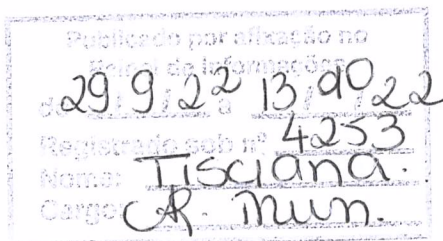 Publicado por afixação no
Painel de Informações
de 29 9 22 a 13 10 22
Registrado sob nº 4253
Nome: Tisciana.
Cargo: AR. mun.